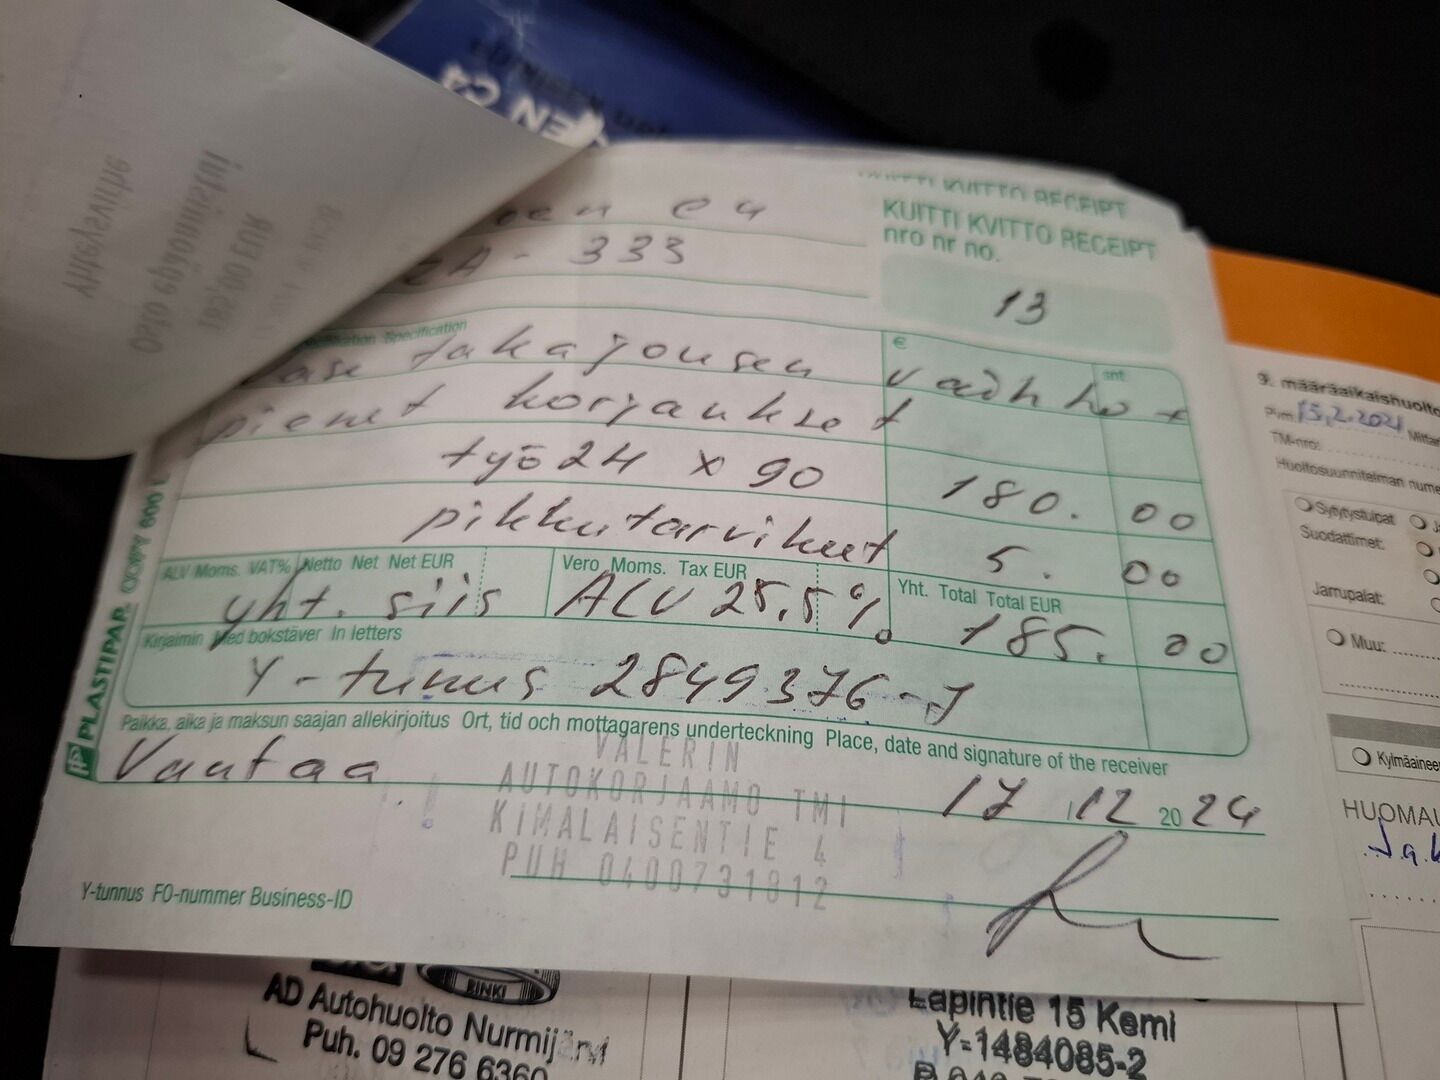 EN C4
Yhteyshlö
Olso
KUITTI KVITTO RECEIPT
KUITTI KVITTO RECEIPT
nro nr no.
13
een c4
A - 333
Specification
€
snt
takajousen vaihto +
pienet korjaukset
työ 2H x 90 180. 00
pikkutarvikeet 5. 00
ALV Moms. VAT% Netto Net Net EUR
Vero Moms. Tax EUR
Yht. Total Total EUR
yht. siis ALV 25,5% 185. 00
Kirjaimin Med bokstäver In letters
Y-tunnus 2849376-7
Paikka, aika ja maksun saajan allekirjoitus Ort, tid och mottagarens underteckning Place, date and signature of the receiver
Vantaa 17 / 12 2024
VALERIN
AUTOKORJAAMO TMI
KIMALAISENTIE 4
PUH 0400731812
Y-tunnus FO-nummer Business-ID
PLASTIPAP COPY 600
9. määräaikaishuolto
Pvm. 15.2.2021 Mittar
TM-nro:
Huoltosuunnitelman nume
Sytytystulpat
Suodattimet:
Jarrupalat:
Muu:
Kylmäainee
HUOMAU
RINKI
AD Autohuolto Nurmijärvi
Puh. 09 276 6360
Lapintie 15 Kemi
Y-1484085-2